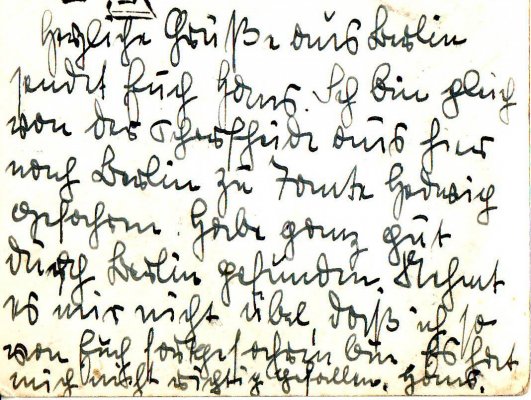 Herzliche Grüße aus Berlin
sendet Euch Hans. Ich bin gleich
von der Schorfheide aus hier
nach Berlin zu Tante Hedwig
gefahren. Habe ganz gut
durch Berlin gefunden. Nehmt
es mir nicht übel, daß ich so
von Euch fortgefahren bin. Es hat
mir nicht richtig gefallen. Hans.